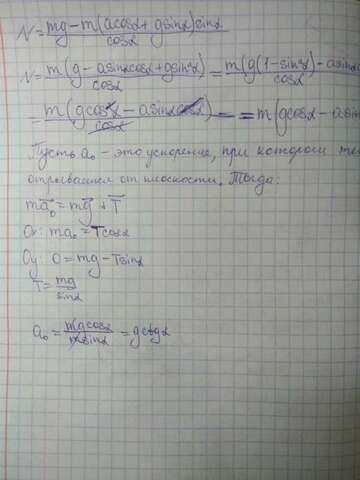 N = mg - m(acosα + gsinα)sinα / cosα
N = m(g - asinαcosα + gsin²α) / cosα = m(g(1 - sin²α) - asinα / cosα
= m(gcos²α - asinαcosα) / cosα = = m(gcosα - asin
Пусть a₀ - это ускорение, при котором те
отрывается от плоскости. Тогда:
ma⃗₀ = mg⃗ + T⃗
Ox: ma₀ = Tcosα
Oy: 0 = mg - Tsinα
T = mg / sinα
a₀ = mgcosα / msinα = gctgα